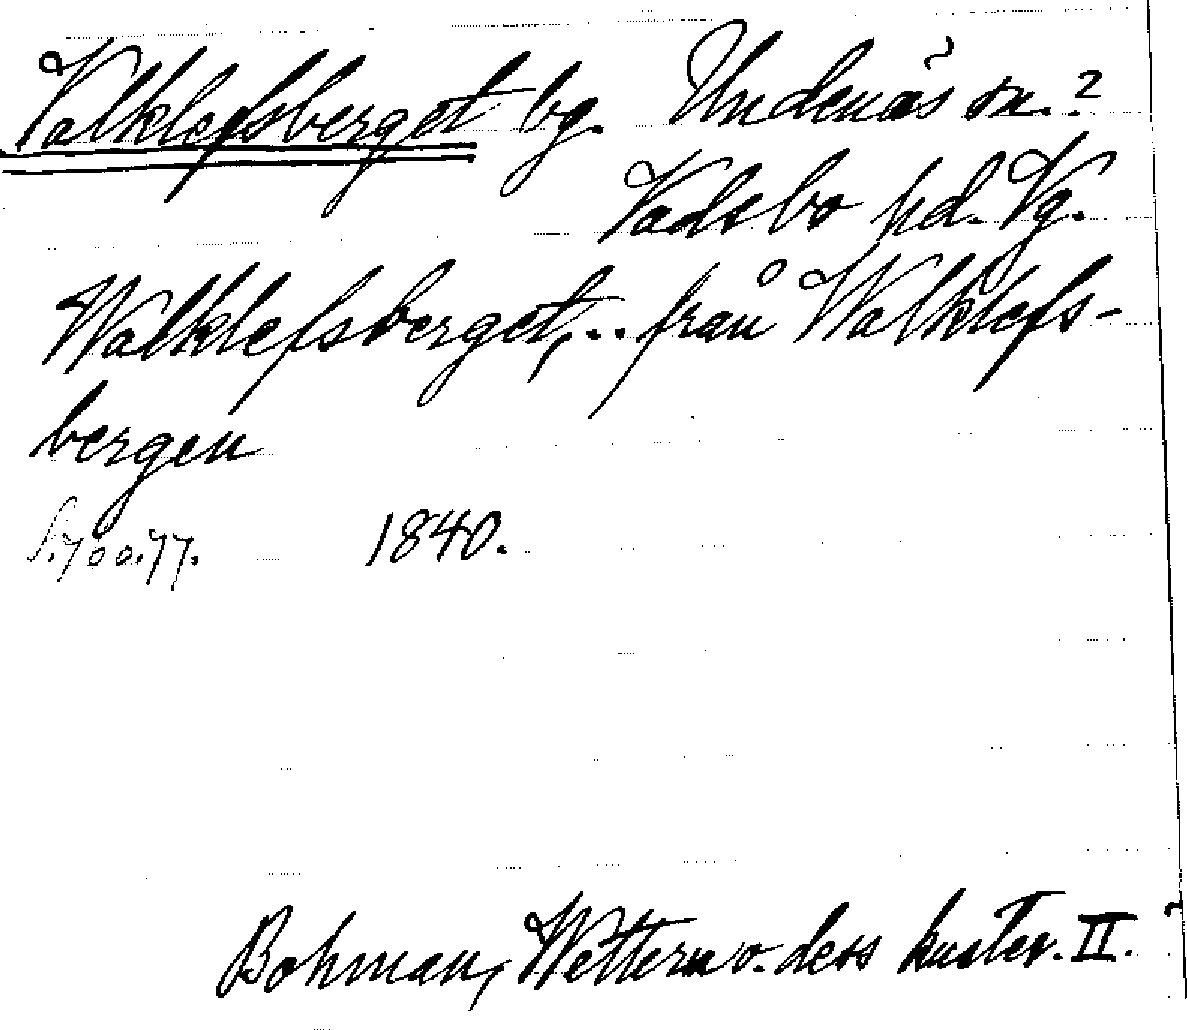 Valklefsberget bg. Undenäs sn.?
Vadsbo hd. Vg.
Walklefsberget,.. från Walklefs-
bergen
S.700.77. 1840.
Bohman, Wettern o. dess kuster. II.